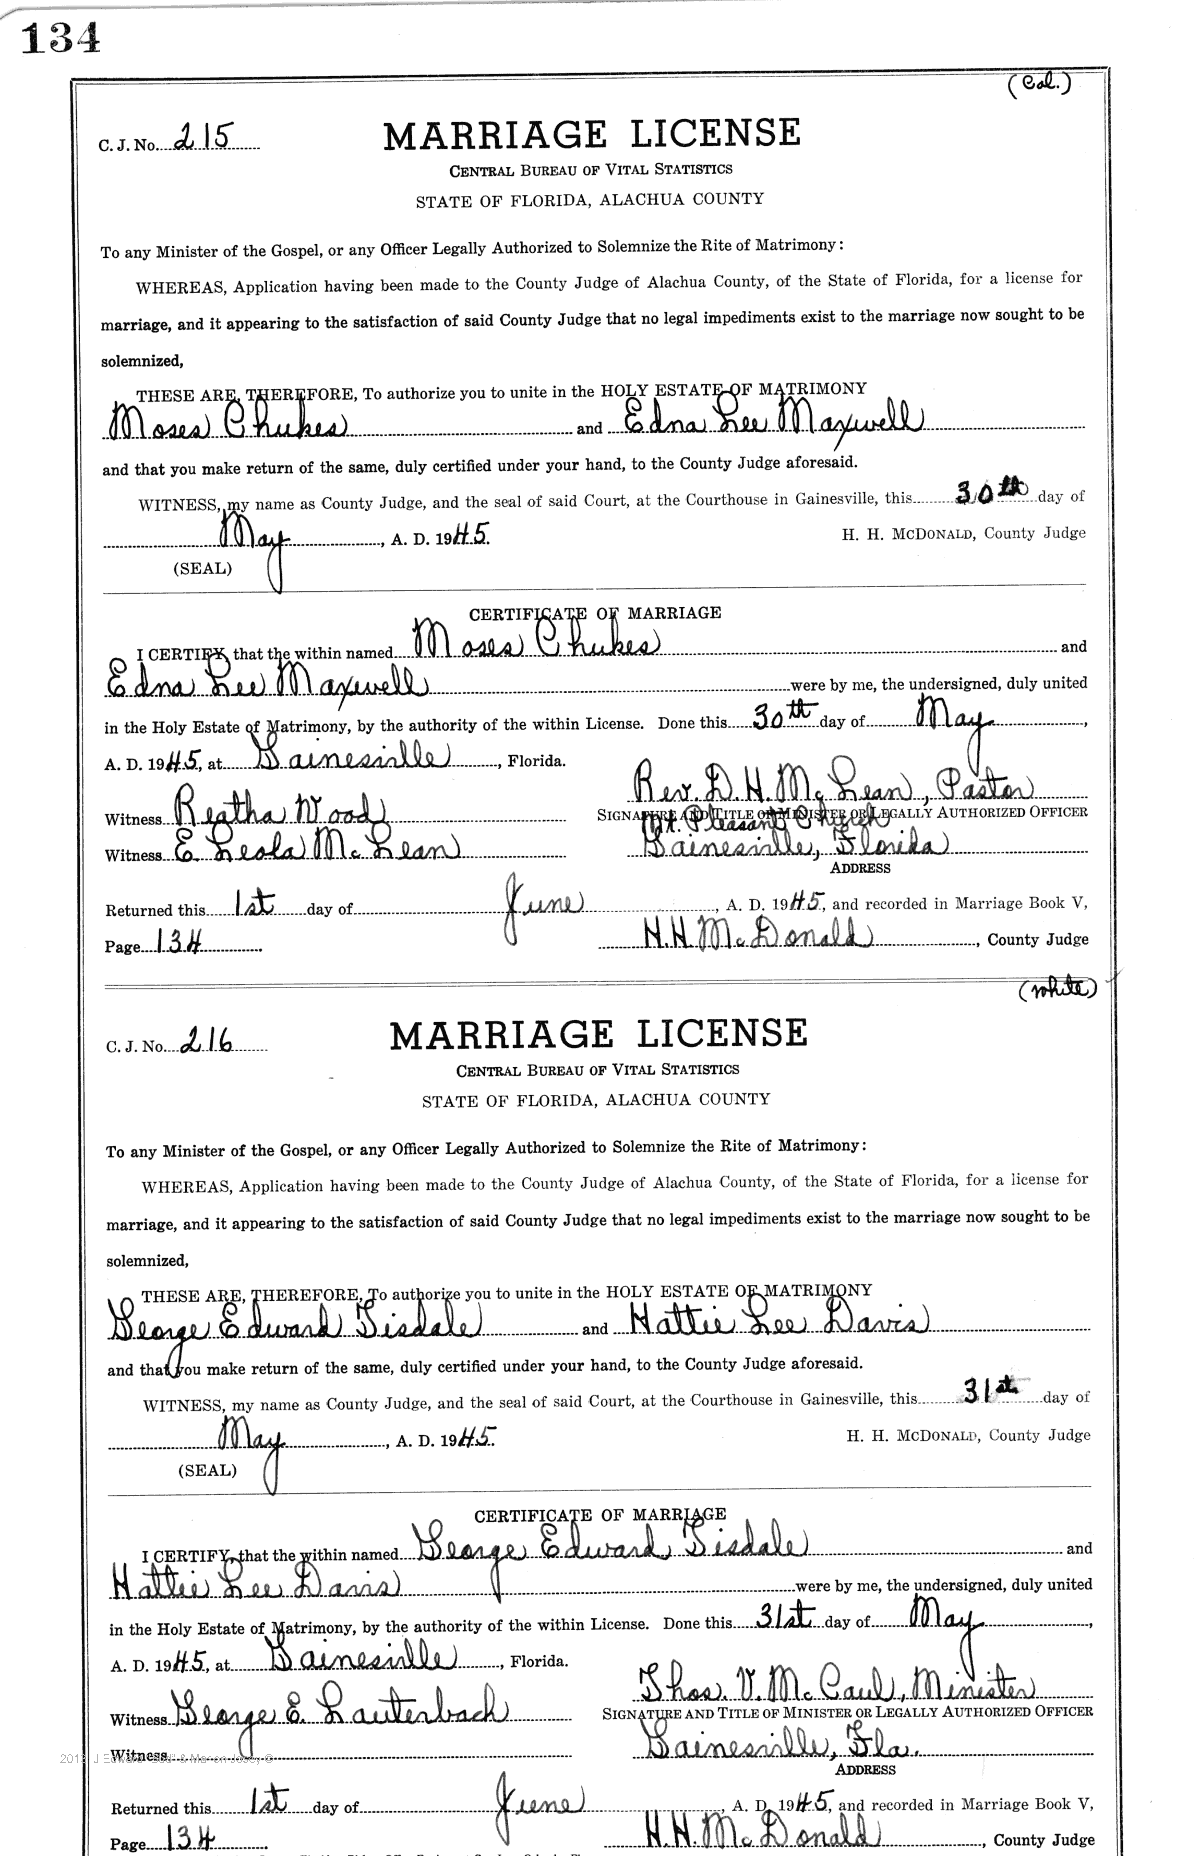 134
(Col.)
C. J. No. 215 MARRIAGE LICENSE
CENTRAL BUREAU OF VITAL STATISTICS
STATE OF FLORIDA, ALACHUA COUNTY
To any Minister of the Gospel, or any Officer Legally Authorized to Solemnize the Rite of Matrimony:
WHEREAS, Application having been made to the County Judge of Alachua County, of the State of Florida, for a license for
marriage, and it appearing to the satisfaction of said County Judge that no legal impediments exist to the marriage now sought to be
solemnized,
THESE ARE, THEREFORE, To authorize you to unite in the HOLY ESTATE OF MATRIMONY
Moses Chukes and Edna Lee Maxwell
and that you make return of the same, duly certified under your hand, to the County Judge aforesaid.
WITNESS, my name as County Judge, and the seal of said Court, at the Courthouse in Gainesville, this 30th day of
May, A. D. 1945. H. H. MCDONALD, County Judge
(SEAL)
CERTIFICATE OF MARRIAGE
I CERTIFY, that the within named Moses Chukes and
Edna Lee Maxwell were by me, the undersigned, duly united
in the Holy Estate of Matrimony, by the authority of the within License. Done this 30th day of May,
A. D. 1945, at Gainesville, Florida.
Rev. D. H. McLean, Pastor
Witness Reatha Wood SIGNATURE AND TITLE OF MINISTER OR LEGALLY AUTHORIZED OFFICER
Mt. Pleasant Church
Witness E Leola McLean Gainesville, Florida
ADDRESS
Returned this 1st day of June, A. D. 1945, and recorded in Marriage Book V,
Page 134 H. H. McDonald, County Judge
(white)
C. J. No. 216 MARRIAGE LICENSE
CENTRAL BUREAU OF VITAL STATISTICS
STATE OF FLORIDA, ALACHUA COUNTY
To any Minister of the Gospel, or any Officer Legally Authorized to Solemnize the Rite of Matrimony:
WHEREAS, Application having been made to the County Judge of Alachua County, of the State of Florida, for a license for
marriage, and it appearing to the satisfaction of said County Judge that no legal impediments exist to the marriage now sought to be
solemnized,
THESE ARE, THEREFORE, To authorize you to unite in the HOLY ESTATE OF MATRIMONY
George Edward Tisdale and Hattie Lee Davis
and that you make return of the same, duly certified under your hand, to the County Judge aforesaid.
WITNESS, my name as County Judge, and the seal of said Court, at the Courthouse in Gainesville, this 31st day of
May, A. D. 1945. H. H. MCDONALD, County Judge
(SEAL)
CERTIFICATE OF MARRIAGE
I CERTIFY, that the within named George Edward Tisdale and
Hattie Lee Davis were by me, the undersigned, duly united
in the Holy Estate of Matrimony, by the authority of the within License. Done this 31st day of May,
A. D. 1945, at Gainesville, Florida.
Thos. V. McCaul, Minister
Witness George E. Lauterbach SIGNATURE AND TITLE OF MINISTER OR LEGALLY AUTHORIZED OFFICER
Witness Gainesville, Fla.
ADDRESS
Returned this 1st day of June, A. D. 1945, and recorded in Marriage Book V,
Page 134 H. H. McDonald, County Judge